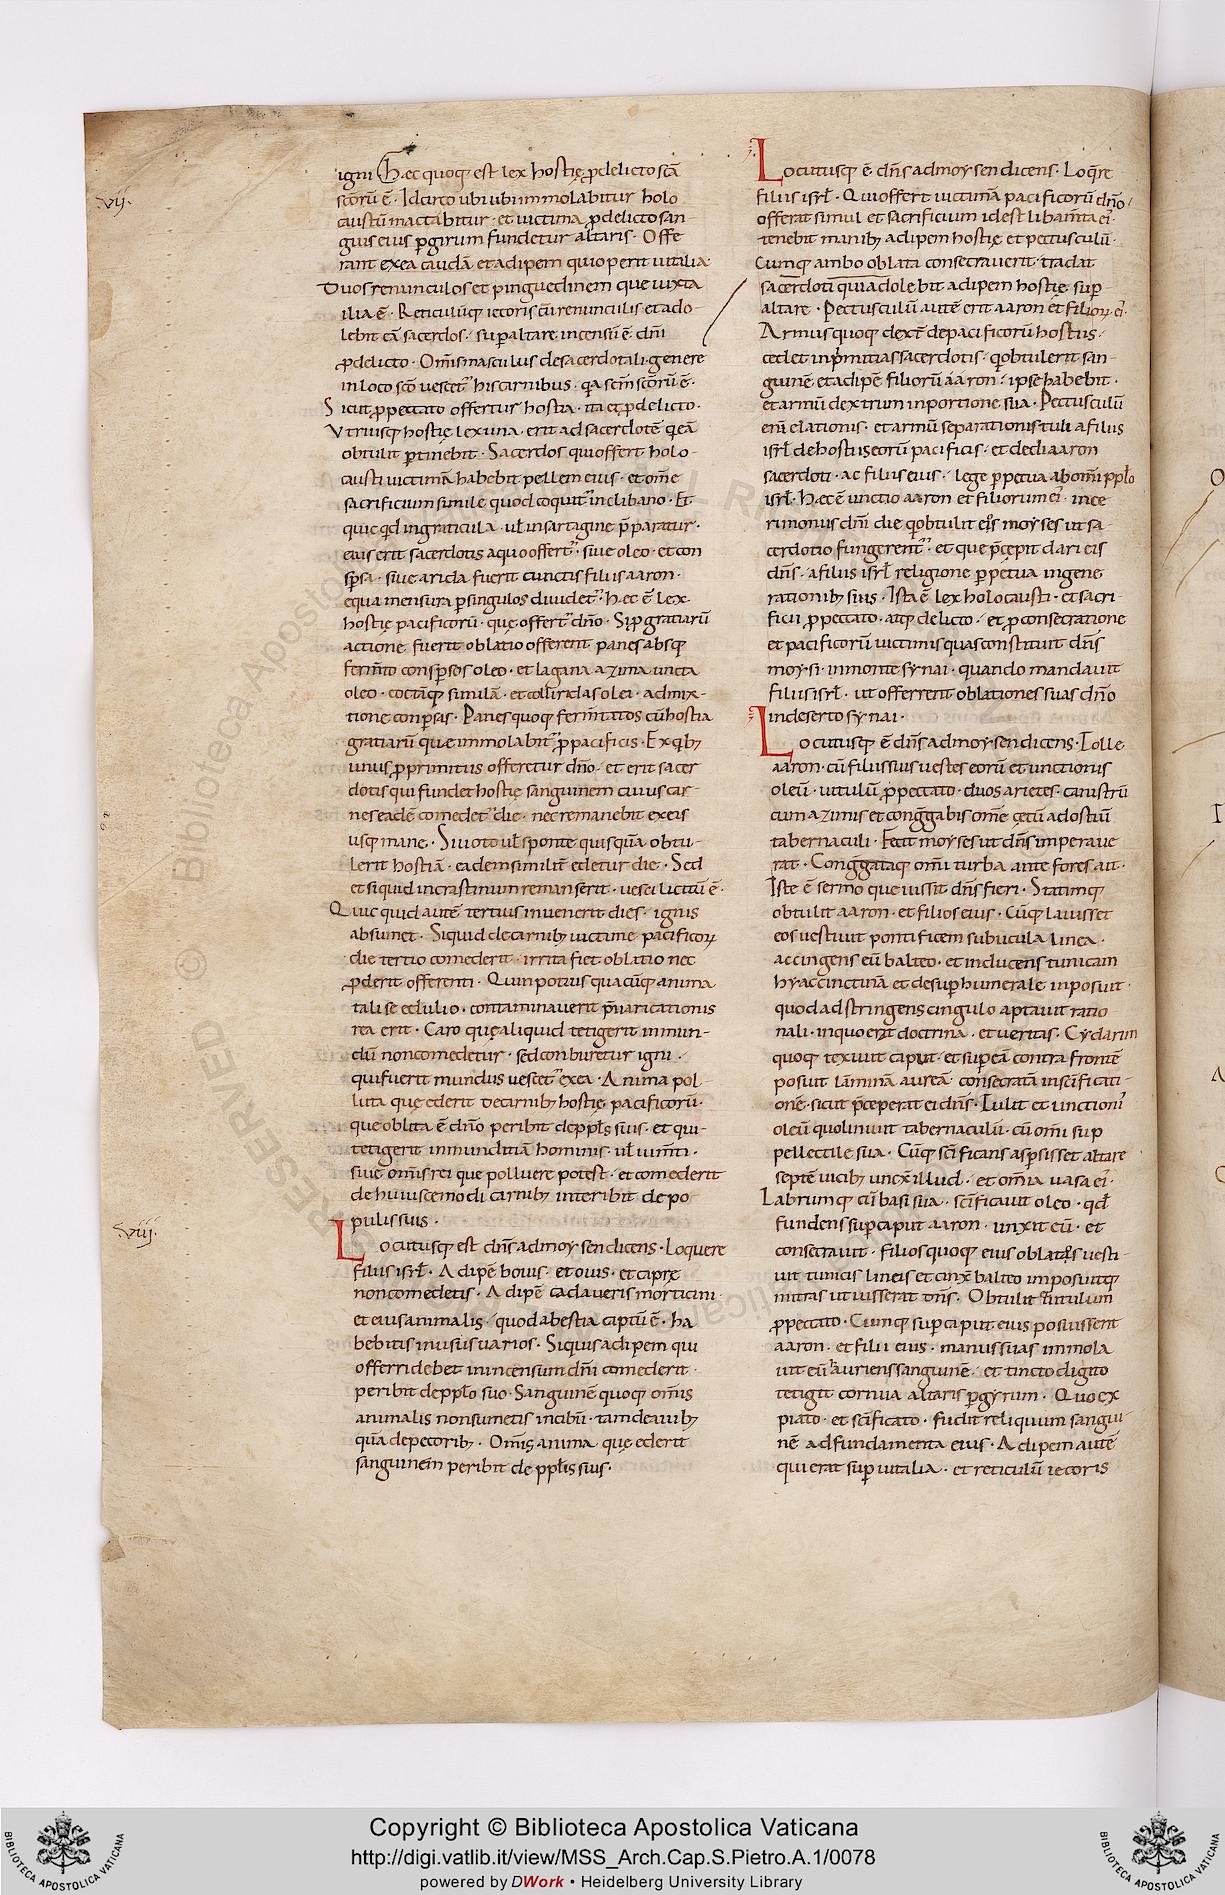 .vii.
igni Hec quoq; est lex hostię p̱delicto scā
scōrū ē. Idcirco ubi ubi immolabitur holo
caustū mactabitur. et uictima p̱delicto san
guis eius ꝑgirum fundetur altaris. Offe
rant exea caudā et adipem qui operit uitalia
Duos renunculos et pinguedinem que iuxta
ilia ē. Reticulūq; iecoris cū renunculis et ado
lebit eā sacerdos. suꝑ altare incensū ē dn̄i
p̱delicto. Om̄is masculus de sacerdotali genere
in loco scō uescet᷑ his carnibus. q̇a scm̄ scōrū ē.
Sicut p̱peccato offertur hostia. ita et p̱delicto.
Vtriusq; hostię lex una. erit ad sacerdotē q̇ eā
obtulit ꝑtinebit. Sacerdos qui offert holo
causti uictimā habebit pellem eius. et om̄e
sacrificium simile quod coquit᷑ in clibano. Et
quic q̇d in graticula. ul̄ in sartagine p̄paratur.
eius erit sacerdotis a quo offert᷑. siue oleo. et con
sꝑsa. siue arida fuerit cunctis filiis aaron.
equa mensura ꝑ singulos diuidet᷑. Hec ē lex
hostię pacificorū. quę offert᷑ dn̄o. Si p̱ gratiarū
actione fuerit oblatio offerent panes absq;
ferm̄to consꝑsos oleo. et lagana azima uncta
oleo. coctāq; similā. et colliridas olei. admix-
tione conꝑsas. Panes quoq; ferm̄tatos cū hostia
gratiarū que immolabit᷑ p̱pacificis. Ex q̇b;
unus p̱primitiis offeretur dn̄o. et erit sacer
dotis qui fundet hostię sanguinem cuius car
nes eadē comedet᷑ die. nec remanebit ex eis
usq; mane. Si uoto ul̄ sponte quisquā obtu-
lerit hostiā. eadem similit̄ edetur die. Sed
et siquid incrastinum remanserit. uesci licitū ē.
Quic quid autē tertius inuenerit dies. ignis
absumet. Siquid de carnib; uictime pacificoꝝ
die tertio comederit. irrita fiet oblatio nec
p̱derit offerenti. Quin potius quacūq; anima
tali se edulio. contaminauerit p̄uaricationis
rea erit. Caro quę aliquid tetigerit inmun-
dū non comedetur. sed conburetur igni.
qui fuerit mundus uescet᷑ exea. Anima pol-
luta quę ederit de carnib; hostię pacificorū.
que oblita ē dn̄o peribit de ppl̄is suis. et qui-
tetigerit inmunditiā hominis. ul̄ ium̄ti.
siue om̄is rei que polluere potest. et comederit
de huiuscemodi carnib; interibit de po
pulis suis.
.viii.
Locutusq; est dn̄s ad moysen dicens. Loquere
filiis isrl̄. Adipē bouis. et ouis. et caprę
non comedetis. Adipē cadaueris morticini.
et eius animalis. quod a bestia captū ē. ha
bebitis in usus uarios. Siquis adipem qui
offerri debet in incensum dn̄i comederit.
peribit de pplo suo. Sanguinē quoq; om̄is
animalis non sumetis in cibū. tam de auib;
quā de pecorib;. Om̄is anima quę ederit
sanguinem peribit de ppl̄is suis.
Locutusq; ē dn̄s ad moysen dicens. Loq̄re
filiis isrl̄. Qui offert uictimā pacificorū dn̄o
offerat simul et sacrificium id est libam̄ta ei᷒.
tenebit manib; adipem hostię et pectusculū.
Cumq; ambo oblata consecrauerit. tradat
sacerdoti qui adolebit adipem hostię suꝑ
altare. Pectusculū autē erit aaron et filioꝝ ei᷒.
Armus quoq; dext̄ de pacificorū hostiis.
cedet in ṗmitias sacerdotis. q̇ obtulerit san-
guinē et adipē filiorū aaron. ipse habebit.
et armū dextrum in portione sua. Pectusculū
enī elationis. et armū separationis tuli a filiis
isrl̄ de hostiis eorū pacificis. et dedi aaron
sacerdoti. ac filiis eius. lege ꝑpetua ab om̄i pplō
isrl̄. Hec ē unctio aaron et filiorum ei᷒. in ce
rimoniis dn̄i die q̇ obtulit eos moyses ut sa-
cerdotio fungerent᷑. et que p̄cepit dari eis
dn̄s. a filiis isrl̄ religione ꝑpetua in gene
rationib; suis. Ista ē lex holocausti. et sacri-
ficii p̱peccato. atq; delicto. et p̱ consecratione
et pacificorū uictimis quas constituit dn̄s
moysi. in monte synai. quando mandauit
filiis isrl̄. ut offerrent oblationes suas dn̄o
in deserto synai.
Locutusq; ē dn̄s ad moysen dicens. Tolle
aaron. cū filiis suis uestes eorū et unctionis
oleū. uitulū p̱peccato. duos arietes. canistrū
cum azimis et cong̅gabis om̄e cętū ad ostiū
tabernaculi. Fecit moyses ut dn̄s imperaue
rat. Cong̅gataq; om̄i turba ante fores ait.
Iste ē sermo que iussit dn̄s fieri. Statimq;
obtulit aaron. et filios eius. Cūq; lauisset
eos uestiuit pontificem subucula linea.
accingens eū balteo. et inducens tunicam
hyaccinctinā et desuꝑ humerale inposuit.
quod adstringens cingulo aptauit ratio
nali. in quo erat doctrina. et ueritas. Cydarim
quoq; texuit caput. et suꝑ eā contra frontē
posuit lāminā aureā. consecratā in sc̄ificati-
onē. sicut p̄ceperat ei dn̄s. Tulit et unctioni᷒
oleū quo liniuit tabernaculū. cū om̄i sup
pellectile sua. Cūq; sc̄ificans asꝑsisset altare
septē uicib; unxit illud. et om̄ia uasa ei᷒.
Labrumq; cū basi sua. sc̄ificauit oleo. qd̄
fundens suꝑ caput aaron. unxit eū. et
consecrauit. filios quoq; eius oblatos uesti-
uit tunicis lineis et cinx̄ balteo imposuitq;
mitras ut iusserat dn̄s. Obtulit et uitulum
p̱peccato. Cumq; suꝑ caput eius posuissent
aaron. et filii eius. manus suas immola
uit eū hauriens sanguinē. et tincto digito
tetigit cornua altaris ꝑ gyrum. Quo ex
piato. et sc̄ificato. fudit reliquum sangui
nē ad fundamenta eius. Adipem autē
qui erat suꝑ uitalia. et reticulū iecoris
Copyright © Biblioteca Apostolica Vaticana
http://digi.vatlib.it/view/MSS_Arch.Cap.S.Pietro.A.1/0078
powered by DWork • Heidelberg University Library